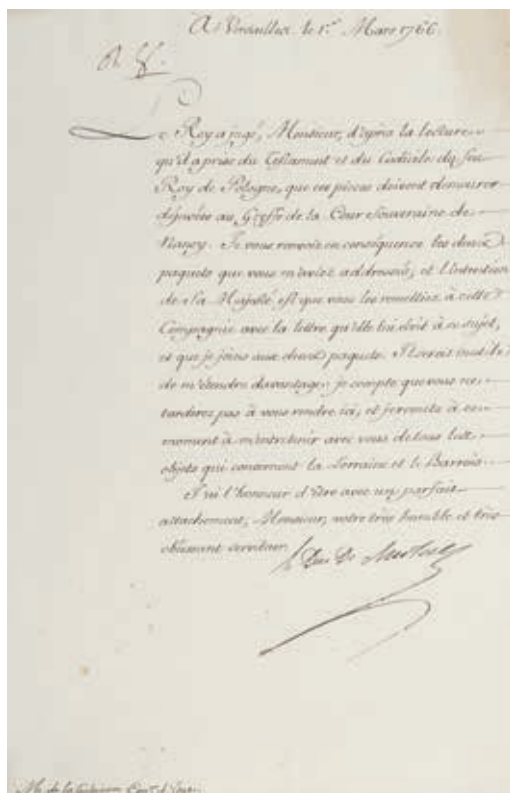 A Versailles le 1.er Mars 1766.
Le Roy a jugé, Monsieur, d'après la lecture
qu'il a prise du Testament et du Codicile du feu
Roy de Pologne, que ces pieces doivent demeurer
déposées au Greffe de la Cour Souveraine de
Nancy. Je vous renvoie en conséquence les deux
paquets que vous m'aviez addressés, et l'intention
de Sa Majesté est que vous les remettiez à cette
Compagnie avec la lettre qu'elle lui écrit à ce sujet,
et que je joins aux deux paquets. Il seroit inutile
de m'étendre davantage; je compte que vous ne
tarderez pas à vous rendre ici, et je remets à ce
moment à m'entretenir avec vous de tous les
objets qui concernent la Lorraine et le Barrois.
J'ai l'honneur d'être avec un parfait
attachement, Monsieur, votre très humble et très
obéissant serviteur.
Le Duc De
M. de la